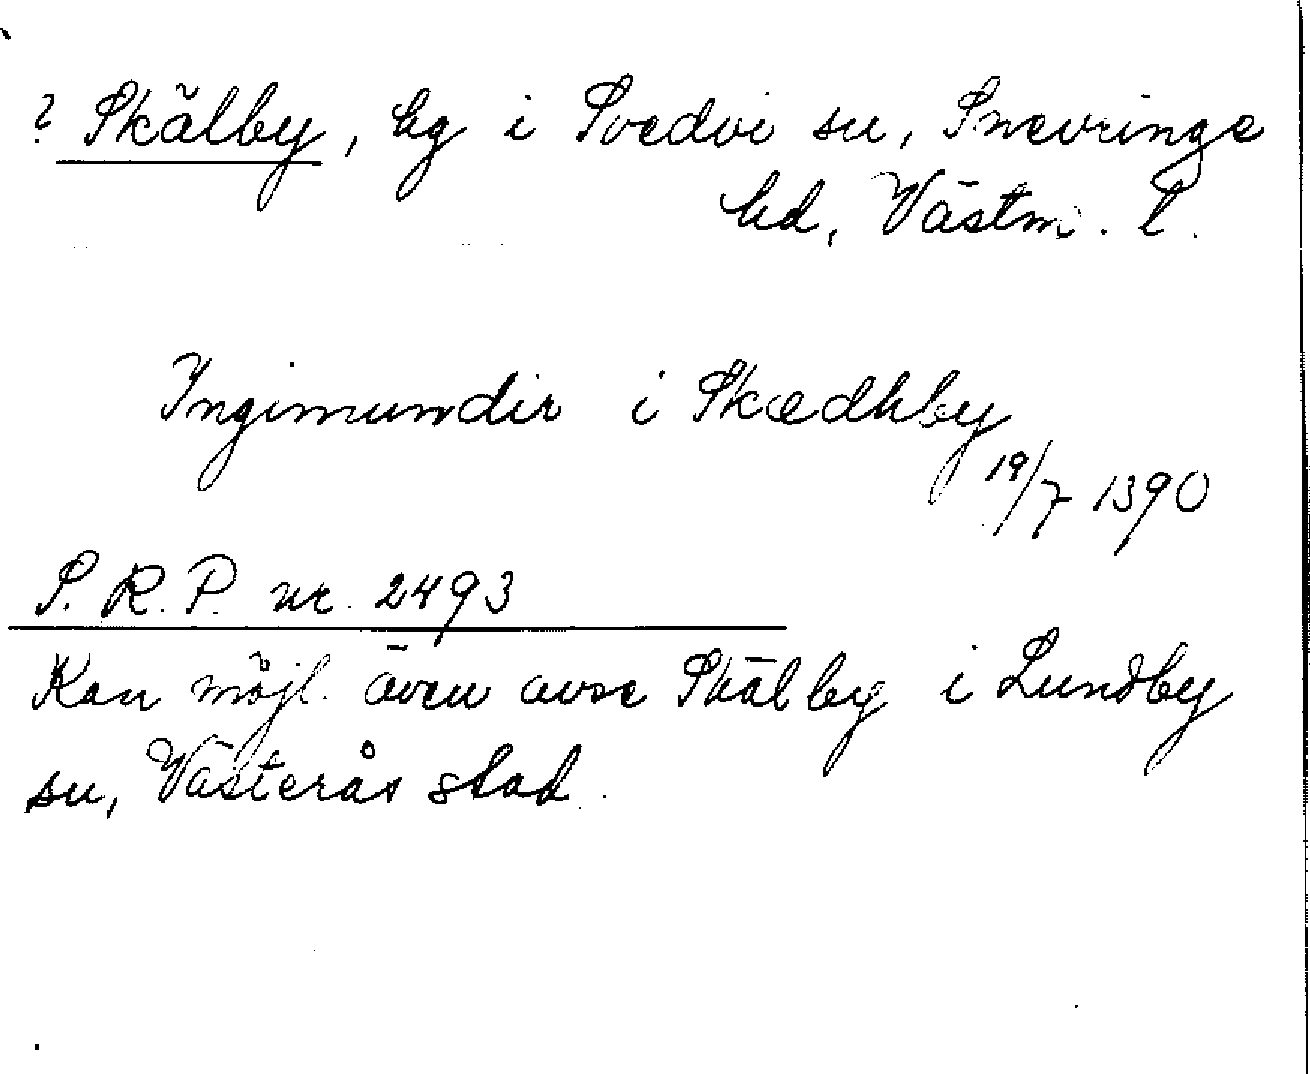 ? Skälby, bg i Svedvi sn, Snevringe
hd, Västm. l.
Ingimundir i Skædhby
19/7 1390
S. R. P. nr. 2493
Kan möjl. även avse Skälby i Lundby
sn, Västerås stad.